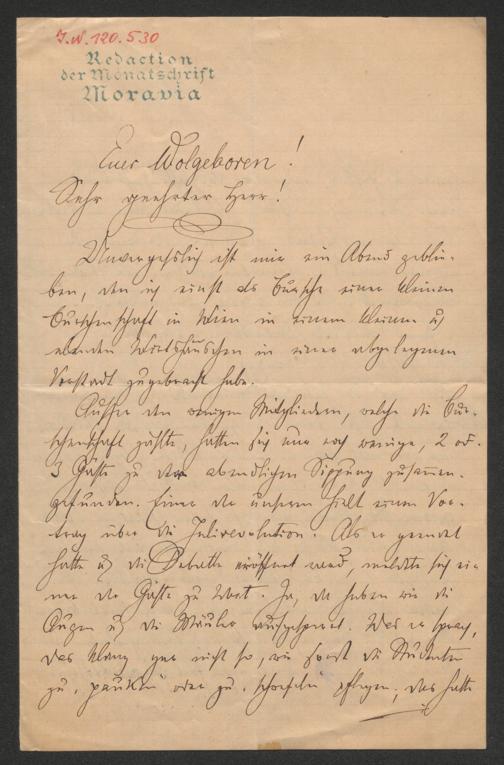 I.N. 120.530
Redaction
der Monatschrift
Moravia
Euer Wolgeboren!
Sehr geehrter Herr!
Unvergeßlich ist mir ein Abend geblie-
ben, den ich einst als Bursche einer kleinen
Burschenschaft in Wien in einem kleinen u.
Wirtshäuschen in einer abgelegenen
Vorstadt zugebracht habe.
Außer den wenigen Mitgliedern, welche die Bur-
schenschaft zählte, hatten sich nur noch wenige, 2 od.
3 Gäste zu der abendlichen Sippung zusammen-
gefunden. Einer der unseren hielt einen Vor-
trag über die Julirevolution. Als er geendet
hatte u. die Debatte eröffnet ward, meldete sich ei-
ner der Gäste zu Wort. Ja, da haben wir die
Augen u. die Mäuler aufgesperrt. Was er sprach,
das klang gar nicht so, wie sonst die Studenten
zu "pauken" oder zu "schwefeln" pflegen; das hatte